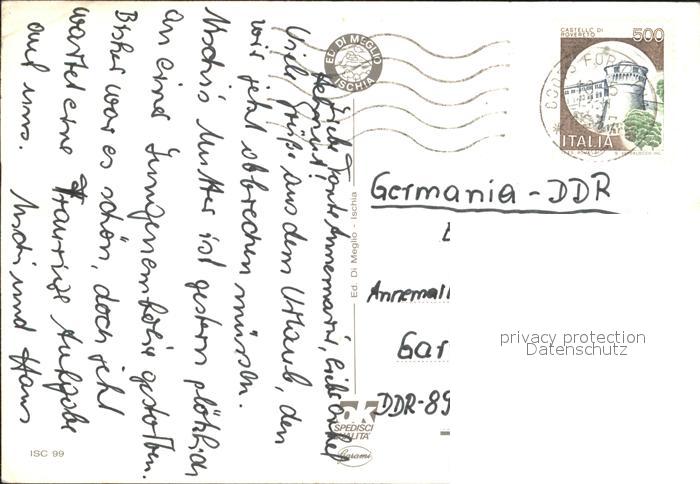 Liebe Tante Annemarie, lieber Onkel
Helmut!
Viele Grüße aus dem Urlaub, den
wir jetzt abbrechen müssen.
Uschi's Mutter ist gestern plötzlich
an einer Lungenembolie gestorben.
Bisher war es schön, doch jetzt
wartet eine traurige Aufgabe
auf uns. Uschi und Hans
ED. DI MEGLIO
ISCHIA
Ed. Di Meglio - Ischia
CASTELLO DI
ROVERETO
500
ITALIA
Germania - DDR
Annemari
Gar
DDR-89
privacy protection
Datenschutz
OK
SPEDISCI
QUALITA'
Garami
ISC 99